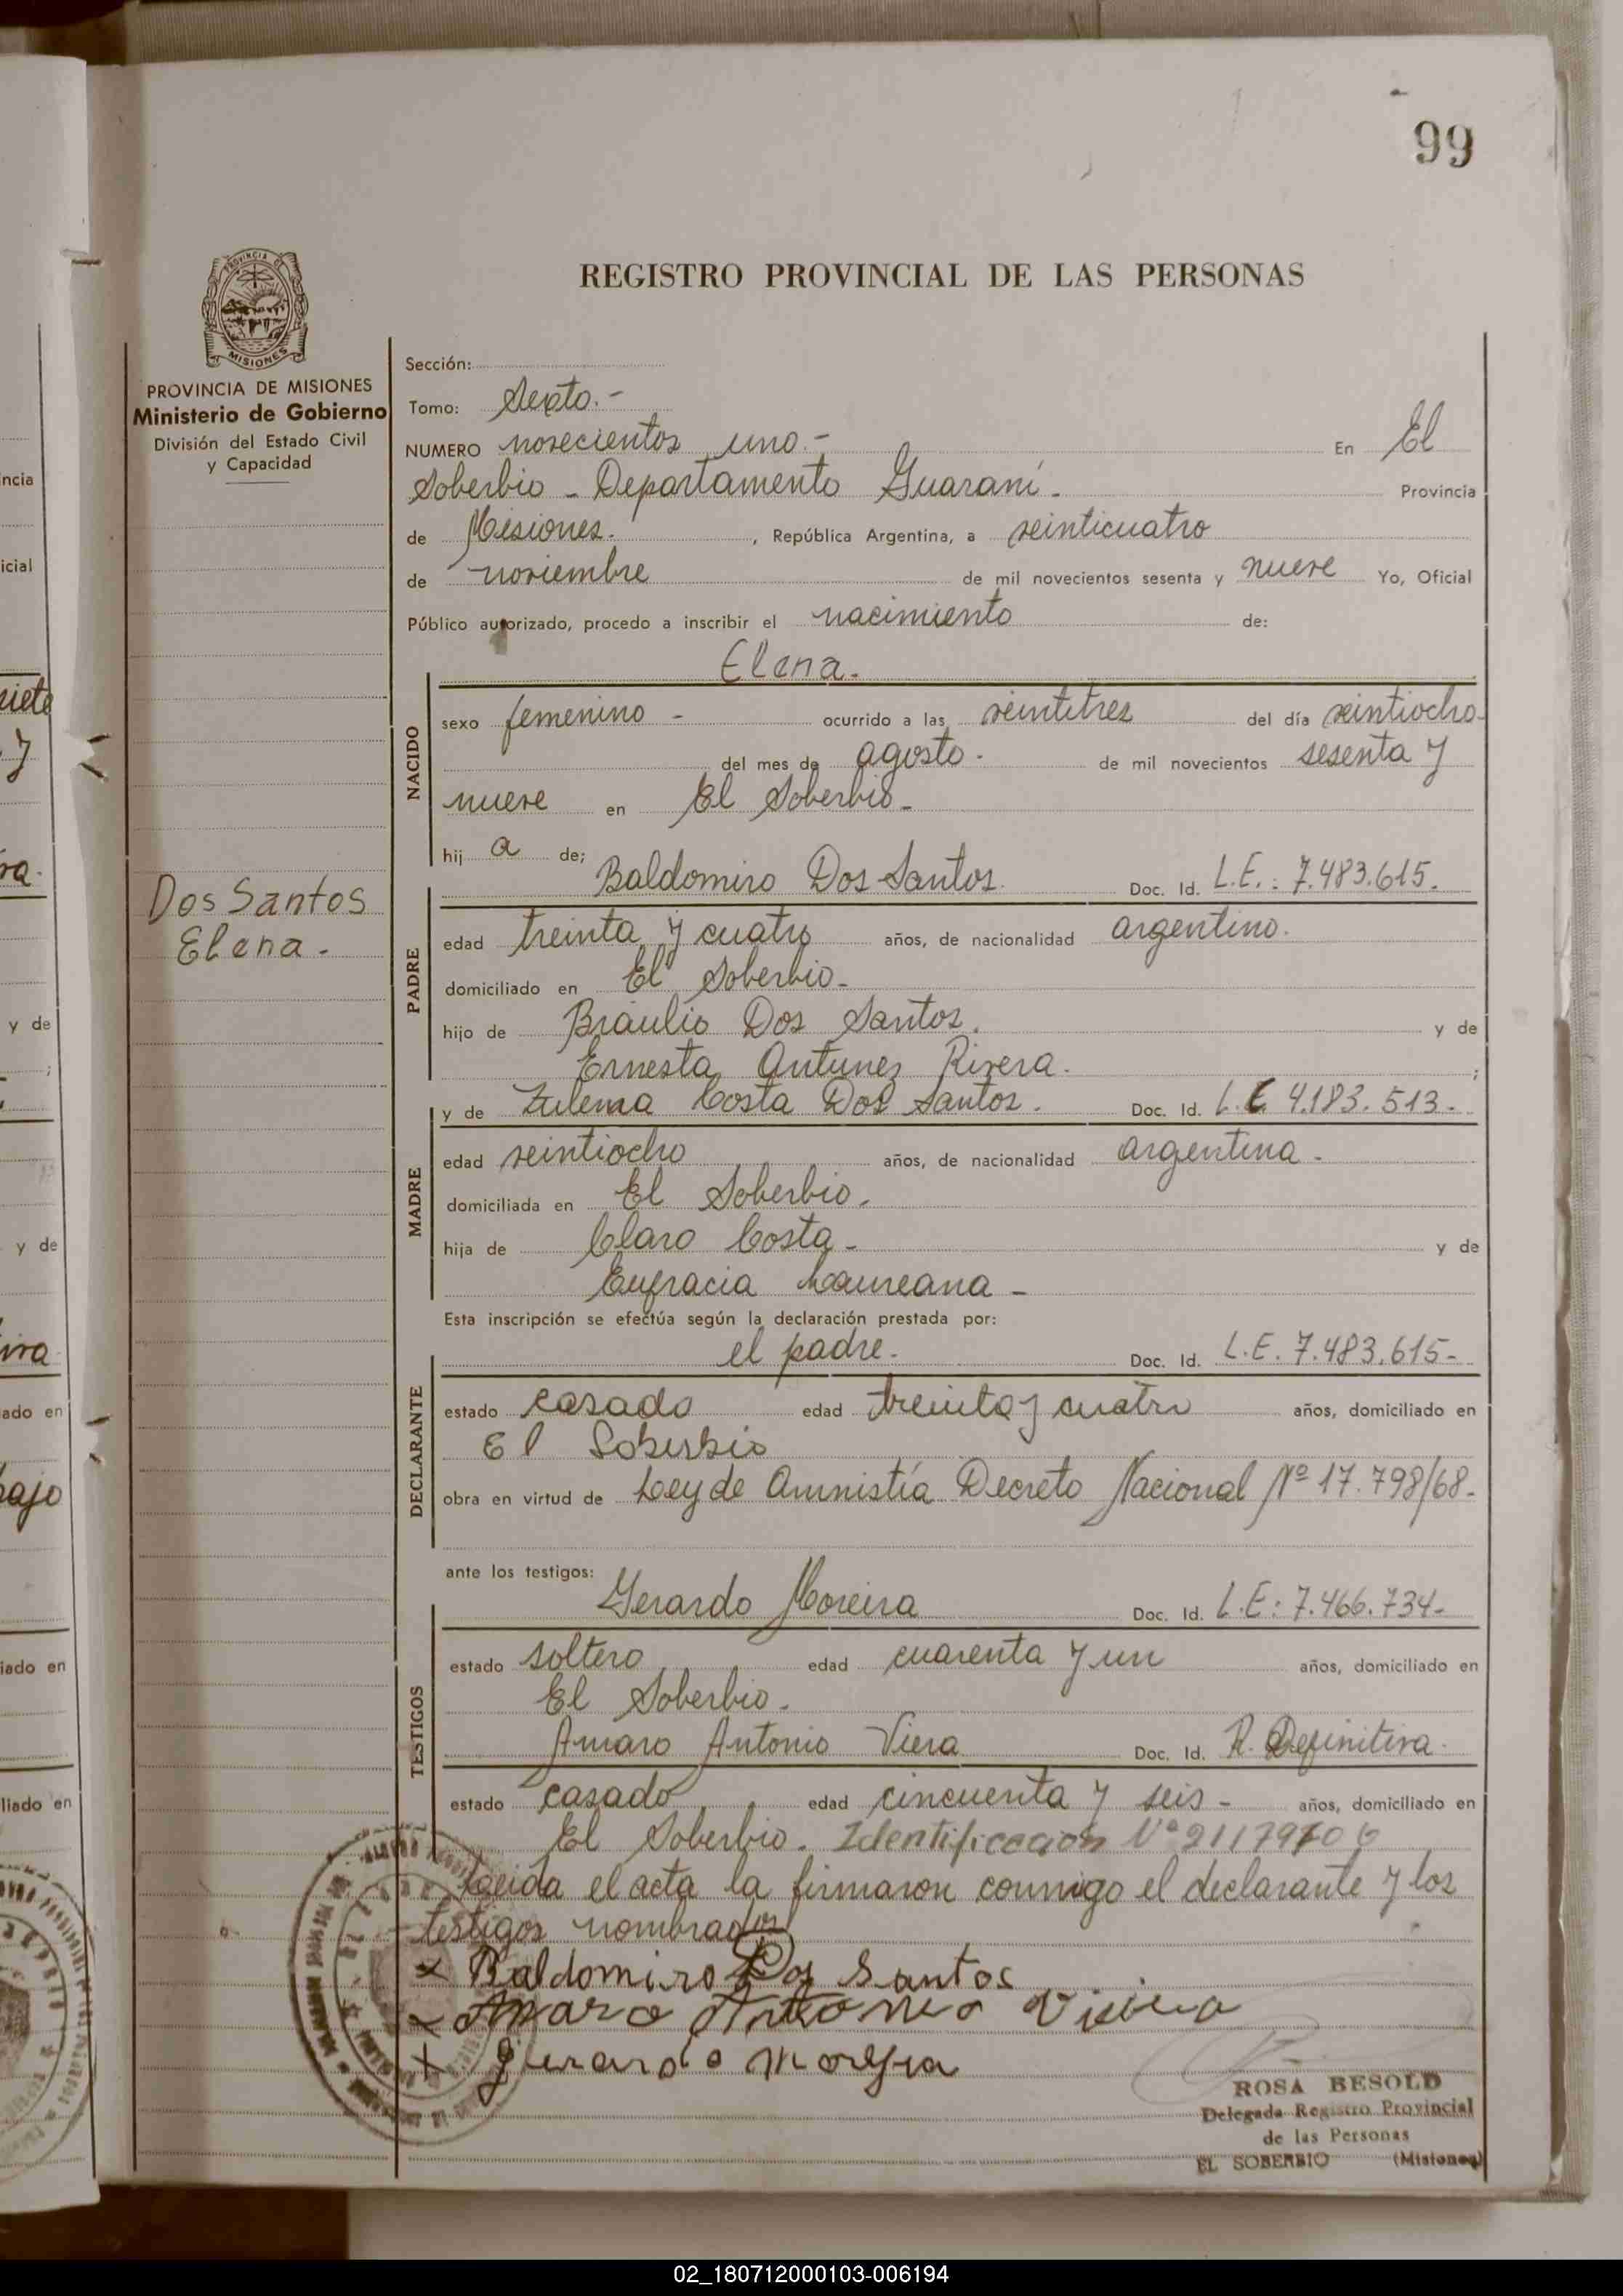 99
REGISTRO PROVINCIAL DE LAS PERSONAS
PROVINCIA DE
MISIONES
PROVINCIA DE MISIONES
Ministerio de Gobierno
División del Estado Civil
y Capacidad
Dos Santos
Elena.-
Sección:
Tomo: Sexto.-
NUMERO novecientos uno.- En El
Soberbio - Departamento Guaraní.- Provincia
de Misiones. , República Argentina, a veinticuatro
de noviembre de mil novecientos sesenta y nueve Yo, Oficial
Público autorizado, procedo a inscribir el nacimiento de:
Elena.-
NACIDO
sexo femenino - ocurrido a las veintitres del día veintiocho-
del mes de agosto.- de mil novecientos sesenta y
nueve en El Soberbio.-
hij a de; Baldomiro Dos Santos. Doc. Id. L.E.: 7.483.615.
PADRE
edad treinta y cuatro años, de nacionalidad argentino.
domiciliado en El Soberbio.-
hijo de Braulio Dos Santos. y de
Ernesta Antunez Rivera. ;
y de Zulema Costa Dos Santos. Doc. Id. L.C 4.183.513.-
MADRE
edad veintiocho años, de nacionalidad argentina.-
domiciliada en El Soberbio.-
hija de Claro Costa.- y de
Eufracia Laureana -
Esta inscripción se efectúa según la declaración prestada por:
el padre. Doc. Id. L.E. 7.483.615-
DECLARANTE
estado casado edad treinta y cuatro años, domiciliado en
El Soberbio
obra en virtud de Ley de Amnistía Decreto Nacional Nº 17.798/68-
ante los testigos:
Gerardo Moreira Doc. Id. L.E: 7.466.734-
TESTIGOS
estado soltero edad cuarenta y un años, domiciliado en
El Soberbio.
Amaro Antonio Viera Doc. Id. R. Definitiva.
estado casado edad cincuenta y seis - años, domiciliado en
El Soberbio. Identificación Nº
Leida el acta la firmaron conmigo el declarante y los
testigos nombrados
x Baldomiro Dos Santos
x Amaro Antonio
x Gerardo
ROSA BESOLD
Delegada Registro Provincial
de las Personas
EL SOBERBIO (Misiones)
02_180712000103-006194